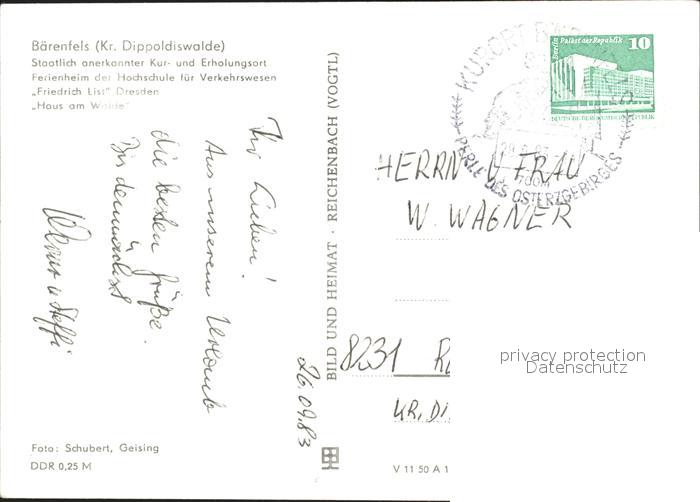 Bärenfels (Kr. Dippoldiswalde)
Staatlich anerkannter Kur- und Erholungsort
Ferienheim der Hochschule für Verkehrswesen
„Friedrich List" Dresden
„Haus am Walde"
Ihr Lieben!
Aus unserem Urlaub
die besten Grüße.
Bis demnächst
Werner u Steffi
26.09.83
Foto: Schubert, Geising
DDR 0,25 M
BILD UND HEIMAT · REICHENBACH (VOGTL)
V 11 50 A 1
KURORT
PERLE DES OSTERZGEBIRGES
Berlin Palast der Republik
10
DEUTSCHE DEMOKRATISCHE REPUBLIK
HERRN U FRAU
W. WAGNER
8231
KR. DI
privacy protection
Datenschutz